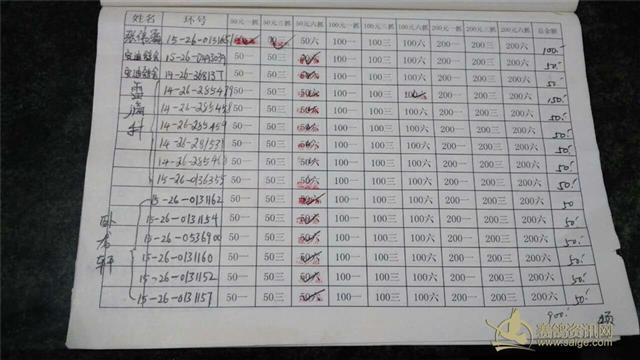 姓名 环号 50元一抓 50元三抓 50元六抓 100元一抓 100元三抓 100元六抓 200元一抓 200元三抓 200元六抓 总金额
50六 100一 100三 100六 200一 200三 200六 100.
50一 50三 100一 100三 100六 200一 200三 200六 50.
50一 50三 50六 100一 100三 100六 200一 200三 200六 50.
14-26-285479 50一 50三 50六 100一 100三 200一 200三 200六 150.
14-26-285458 50一 50三 50六 100一 100三 100六 200一 200三 200六 50.
14-26-285459 50一 50三 50六 100一 100三 100六 200一 200三 200六 50.
50一 50三 50六 100一 100三 100六 200一 200三 200六 50.
50一 50三 50六 100一 100三 100六 200一 200三 200六 50.
15-26-0136355 50一 50三 50六 100一 100三 100六 200一 200三 200六 50
15-26-0131162 50一 50三 50六 100一 100三 100六 200一 200三 200六 50.
15-26-0131154 50一 50三 50六 100一 100三 100六 200一 200三 200六 50.
15-26-0536900 50一 50三 50六 100一 100三 100六 200一 200三 200六 50.
15-26-0131160 50一 50三 50六 100一 100三 100六 200一 200三 200六 50.
15-26-0131152 50一 50三 50六 100一 100三 100六 200一 200三 200六 50.
15-26-0131157 50一 50三 50六 100一 100三 100六 200一 200三 200六 50.
卧龙轩
900.
赛鸽资讯网
www.saige.com